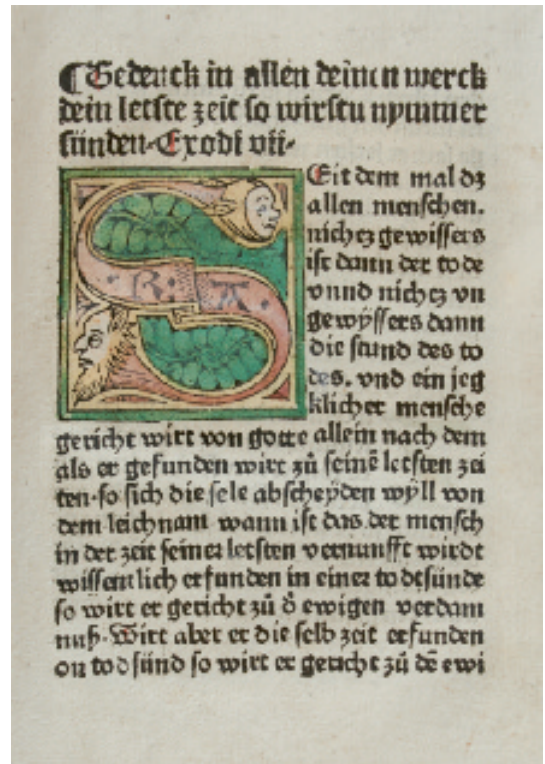 ¶ Gedenck in allen deinen werck
dein letste zeit so wirstu nymmer
sünden. Exodi vii.
SEit dem mal dz
allen menschen.
nichtz gewissers
ist dann der tode
vnnd nichtz vn
gewyssers dann
die stund des to
des. vnd ein jeg
klicher mensche
gericht wirt von gotte allein nach dem
als er gefunden wirt zů seinē letsten zei
ten. so sich die sele abscheyden wyll von
dem leichnam wann ist das der mensch
in der zeit seiner letsten vernunfft wirdt
wissentlich erfunden in einer todtsünde
so wirt er gericht zů d̄ ewigen verdam
nuß. Wirt aber er die selb zeit erfunden
on todsünd so wirt er gericht zů dē ewi